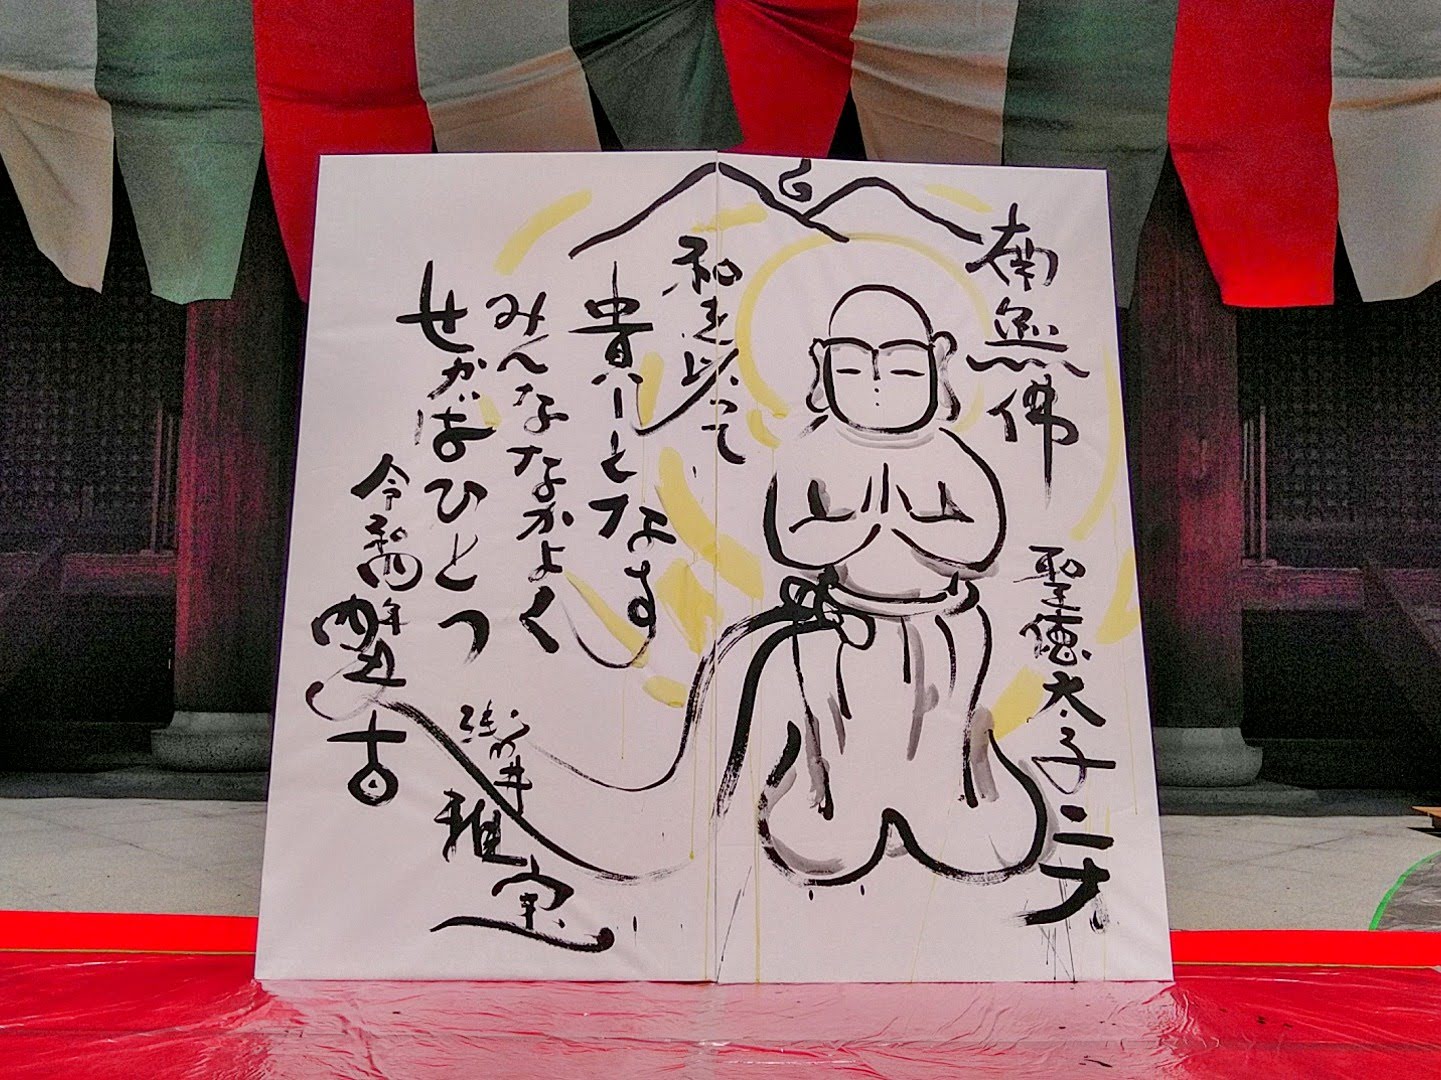 南無佛
聖徳太子二才
和を以って
貴しとなす
みんななかよく
せかいはひとつ
令和四年
雅宝